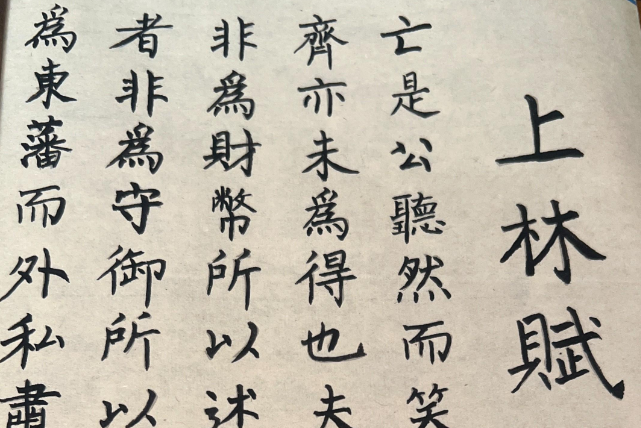 上林賦
亡是公聽然而笑
齊亦未為得也夫
非為財幣所以述
者非為守御所以
為東藩而外私肅